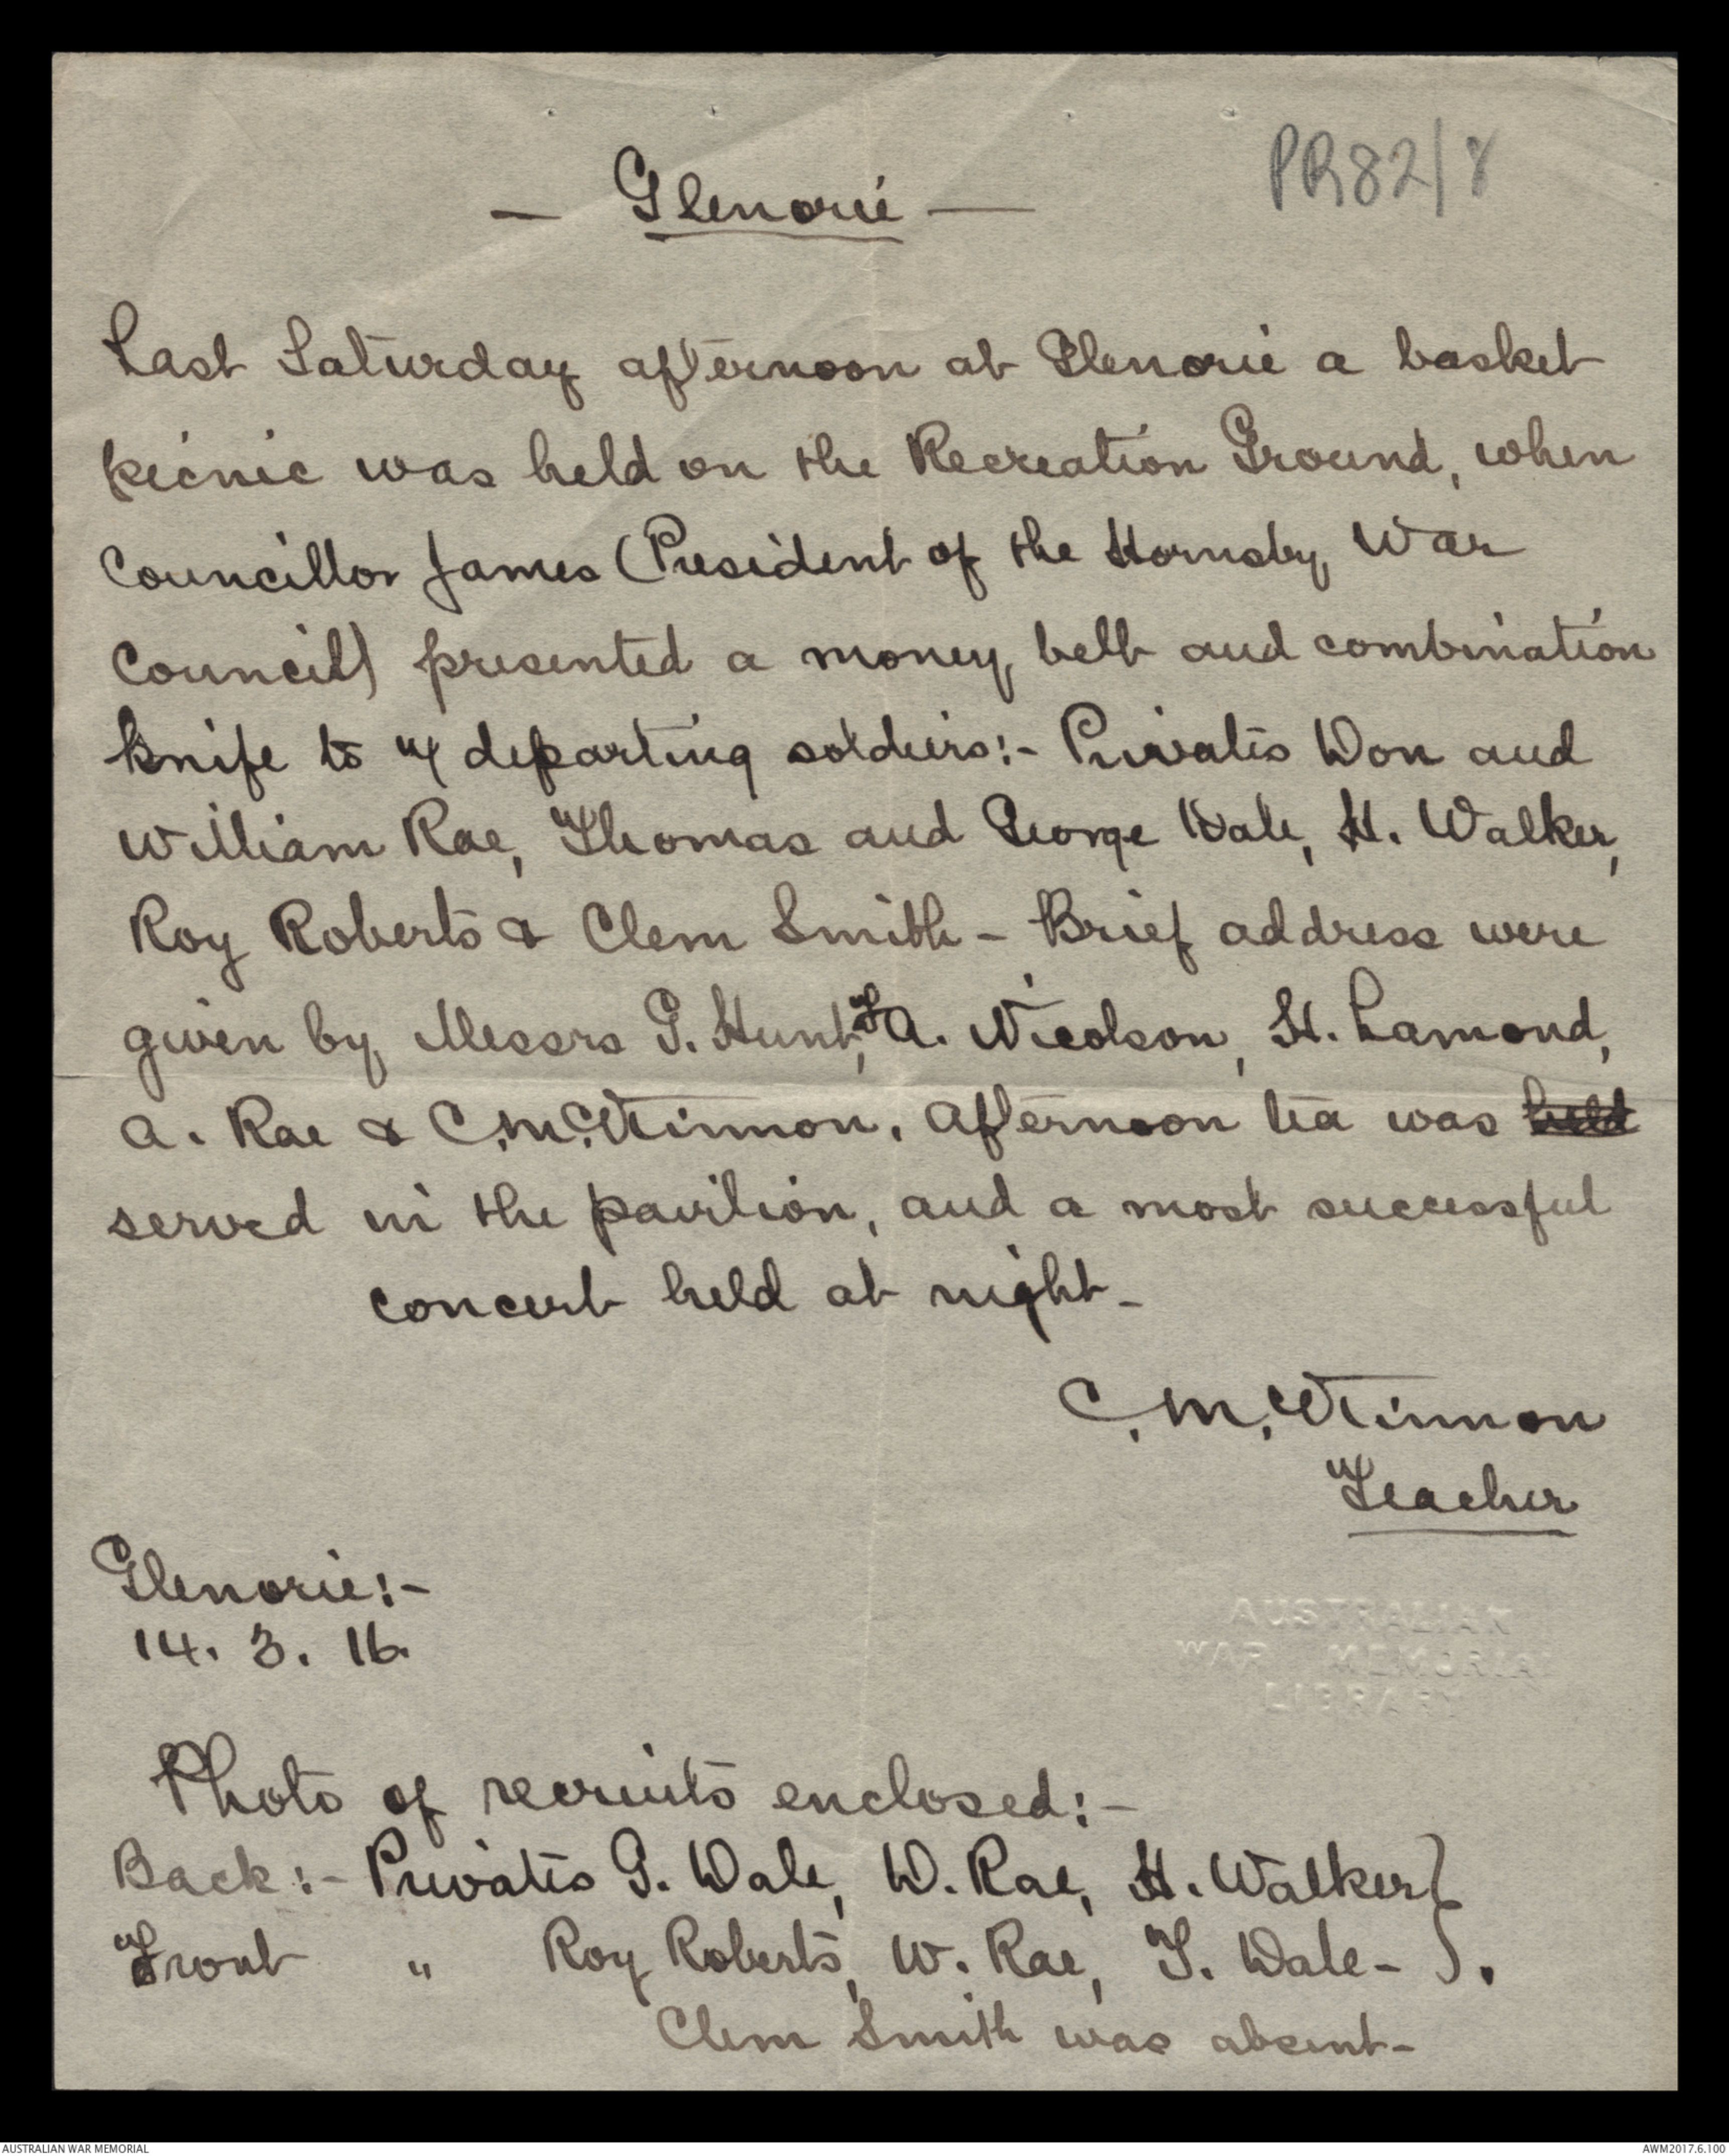 PR82/8
— Glenorie —
Last Saturday afternoon at Glenorie a basket
picnic was held on the Recreation Ground, when
Councillor James (President of the Hornsby War
Council) presented a money belt and combination
knife to 7 departing soldiers:- Privates Don and
William Rae, Thomas and George Dale, H. Walker,
Roy Roberts & Clem Smith - Brief address were
given by Messrs G. Hunt, F A. Nicolson, H. Lamond,
A. Rae & C. McKinnon. Afternoon tea was held
served in the pavilion, and a most successful
concert held at night -
C. McKinnon
Teacher
Glenorie:-
14. 3. 16.
AUSTRALIAN
WAR MEMORIAL
LIBRARY
Photo of recruits enclosed:-
Back:- Privates G. Dale, D. Rae, H. Walker}
Front " Roy Roberts, W. Rae, T. Dale - }.
Clem Smith was absent -
AUSTRALIAN WAR MEMORIAL
AWM2017.6.100